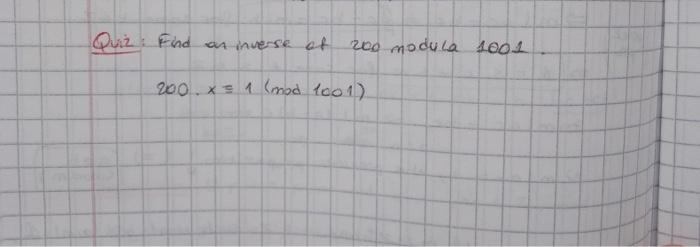 Quiz: Find an inverse of 200 modula 1001.
200. x ≡ 1 (mod 1001)